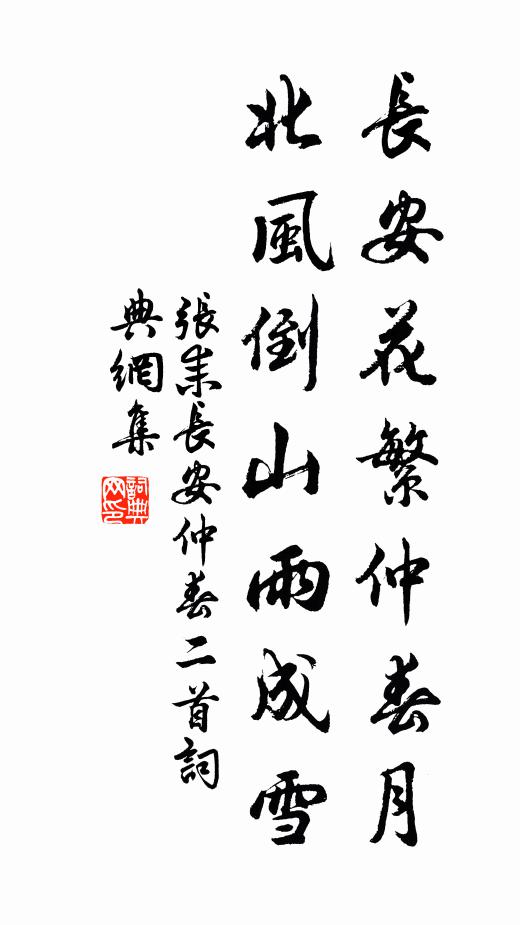 長安花繁仲春月
北風倒山雨成雪
張耒長安仲春二首詞
典網集
詞典
网印